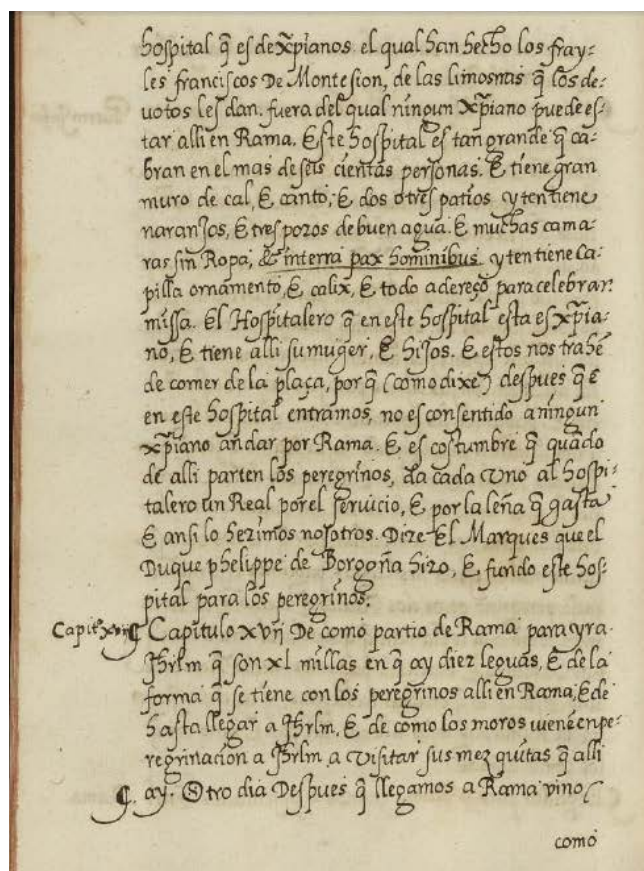 hospital q̃ es de xp̃ianos. el qual han hecho los fray-
les franciscos De Montesion, de las limosnas q̃ los de-
uotos les dan. fuera del qual ningun xp̃iano puede es-
tar alli en Rama. Este hospital es tan grande q̃ ca-
bran en el mas de seis cientas personas. E tiene gran
muro de cal, E canto, E dos otres patios y ten tiene
naranjos, E tres pozos de buen agua. E muchas cama-
ras sin Ropa, & in terra pax hominibus. y ten tiene Ca-
pilla ornamento, E calix, E todo adereço para celebrar
missa. El Hospitalero q̃ en este hospital esta es xp̃ia-
no, E tiene alli su muger, E hijos. E estos nos trahẽ
de comer de la plaça, por q̃ (como dixe) despues q̃
en este hospital entramos, no es consentido a ningun
xp̃iano andar por Rama. E es costumbre q̃ quãdo
de alli parten los peregrinos, da cada uno al hospi-
talero un Real por el seruicio, E por la leña q̃ gasta
E ansi lo hezimos nosotros. Dize El Marques que el
Duque phelippe de Borgoña hizo, E fundo este hos-
pital para los peregrinos.
Capit. xvij ¶ Capitulo xvij De como partio de Rama para yr a
Jhrlm q̃ son xl millas en q̃ ay diez leguas, E de la
forma q̃ se tiene con los peregrinos alli en Rama, E de
hasta llegar a Jhrlm, E de como los moros uienẽ en pe-
regrinacion a Jhrlm a visitar sus mezquitas q̃ alli
¶. ay. Otro dia Despues q̃ llegamos a Rama vino
como